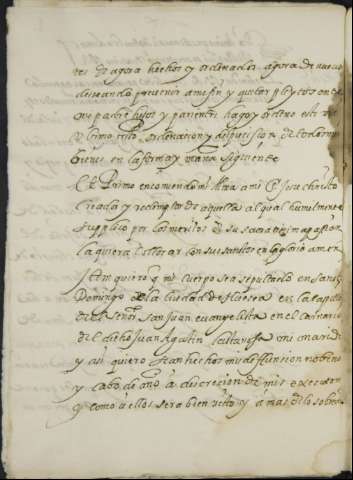 res q̃ agora hechos y ordenados agora de nuevo
deseando prevenir a mi fin y quitar pleytos entre
padre hijos y parientes hago y ordeno este mi
ultimo testo, ordenacion y disposicion de todos mis
bienes en la forma y manera siguiente
Et Primo encomiendo mi Alma a mi Sr Jesu christo
Criador y redemptor de aquella al qual humilmente
supplico por los meritos de su sacratissima passion
la quiera collocar con sus santos en la gloria amen
Item quiero q̃ mi cuerpo sea sepultado en Santo
Domingo de la Ciudad de Huesca en la capilla
del Señor san Juan evangelista en el
del dicho Juan Agustin mi marido
y assi quiero sean hechos mi deffuncion nobena
y cabo de año a discrecion de mis executores
y como a ellos sera bien visto y a mas de lo sobre